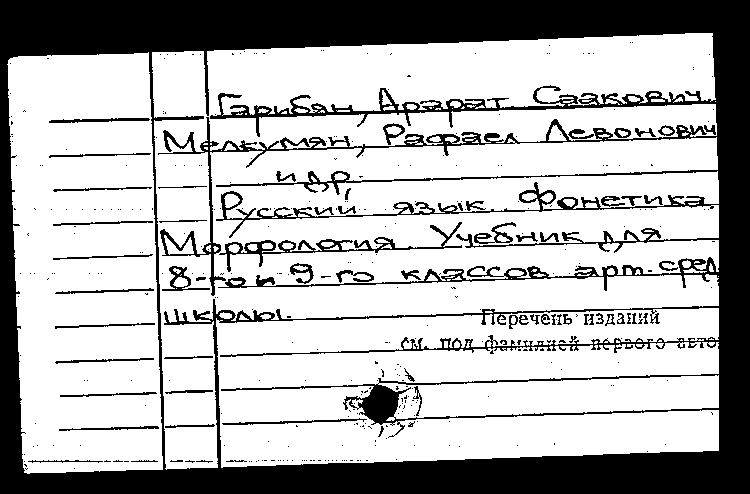 Гарибян, Арарат Саакович.
Мелкумян, Рафаел Левонович
и др.
Русский язык. Фонетика.
Морфология. Учебник для
8-го и 9-го классов арм. сред.
школы.
Перечень изданий
см. под фамилией первого авто